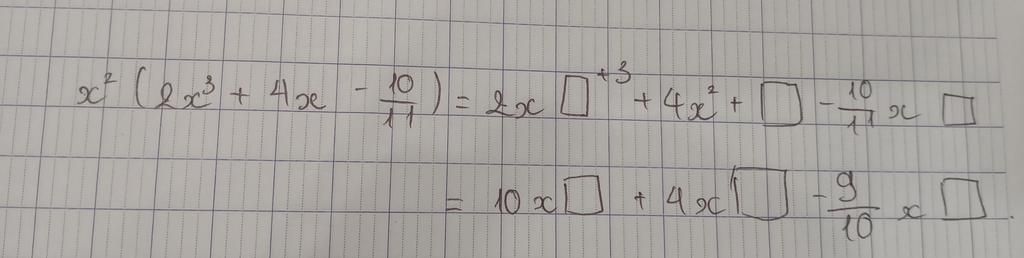 x² (2x³ + 4x - 10/11) = 2x □⁺³ + 4x² + □ - 10/11 x □
= 10x □ + 4x □ - 9/10 x □.